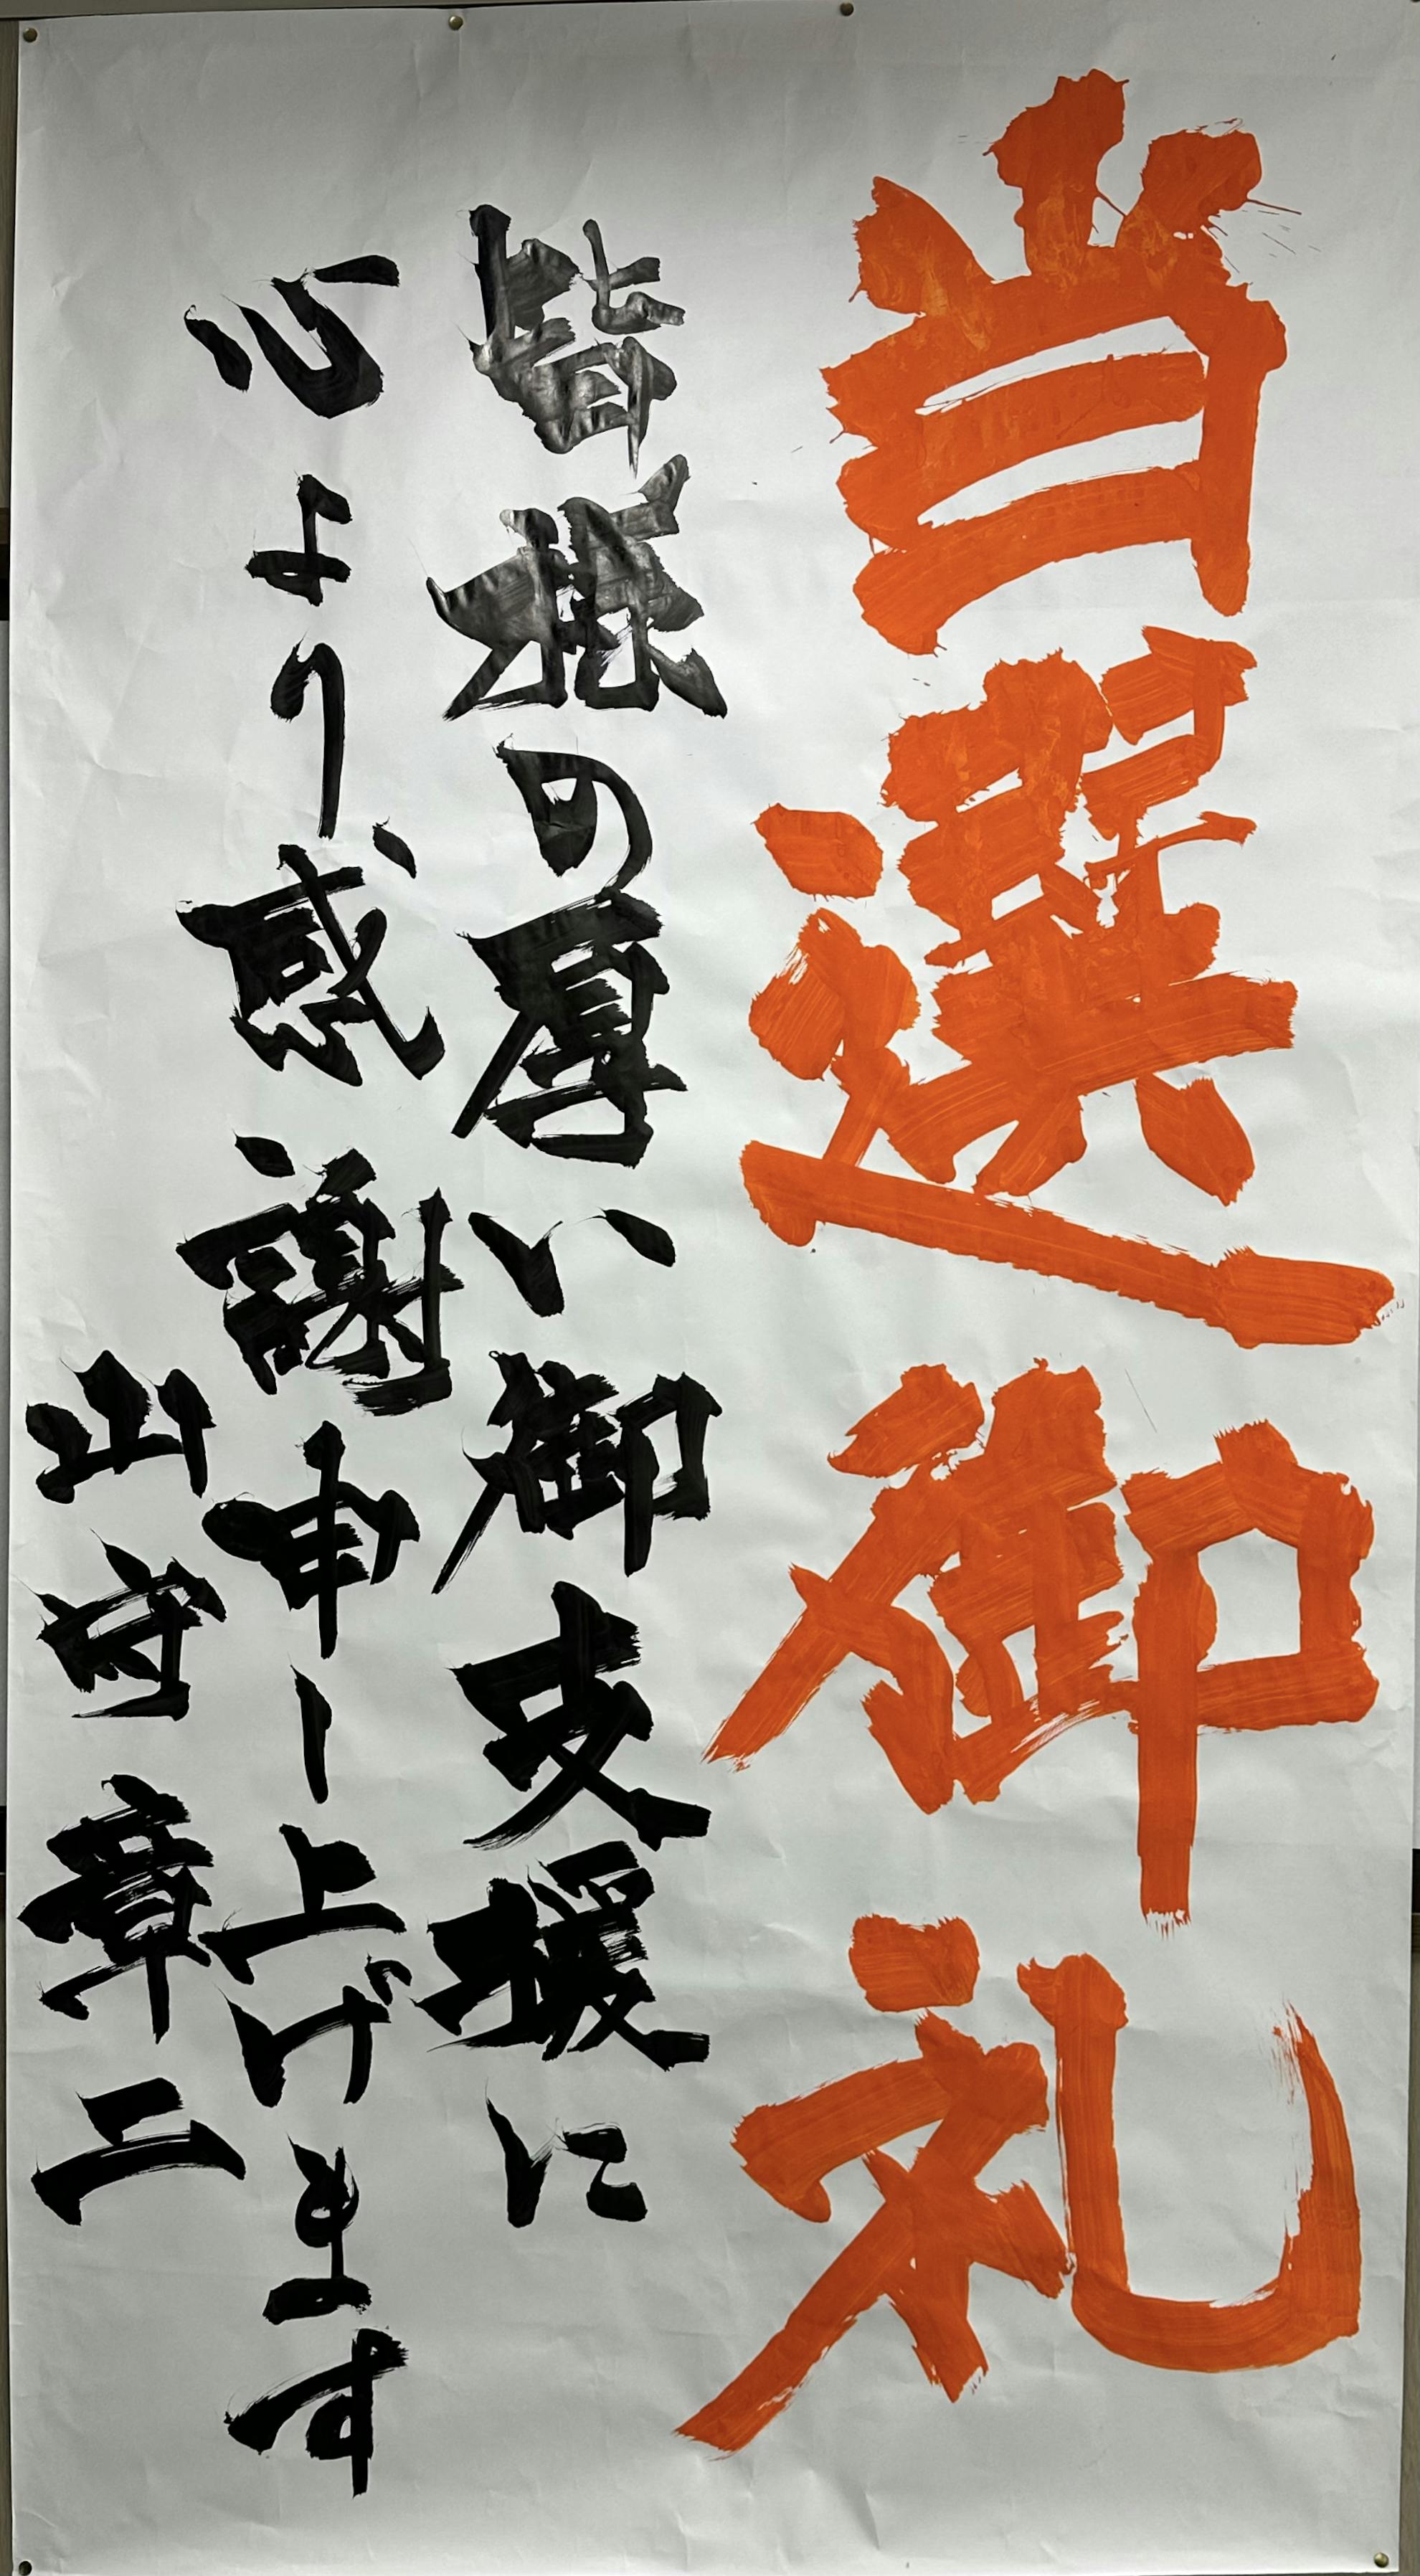 当選御礼
皆様の厚い御支援に
心より感謝申し上げます
山守章二